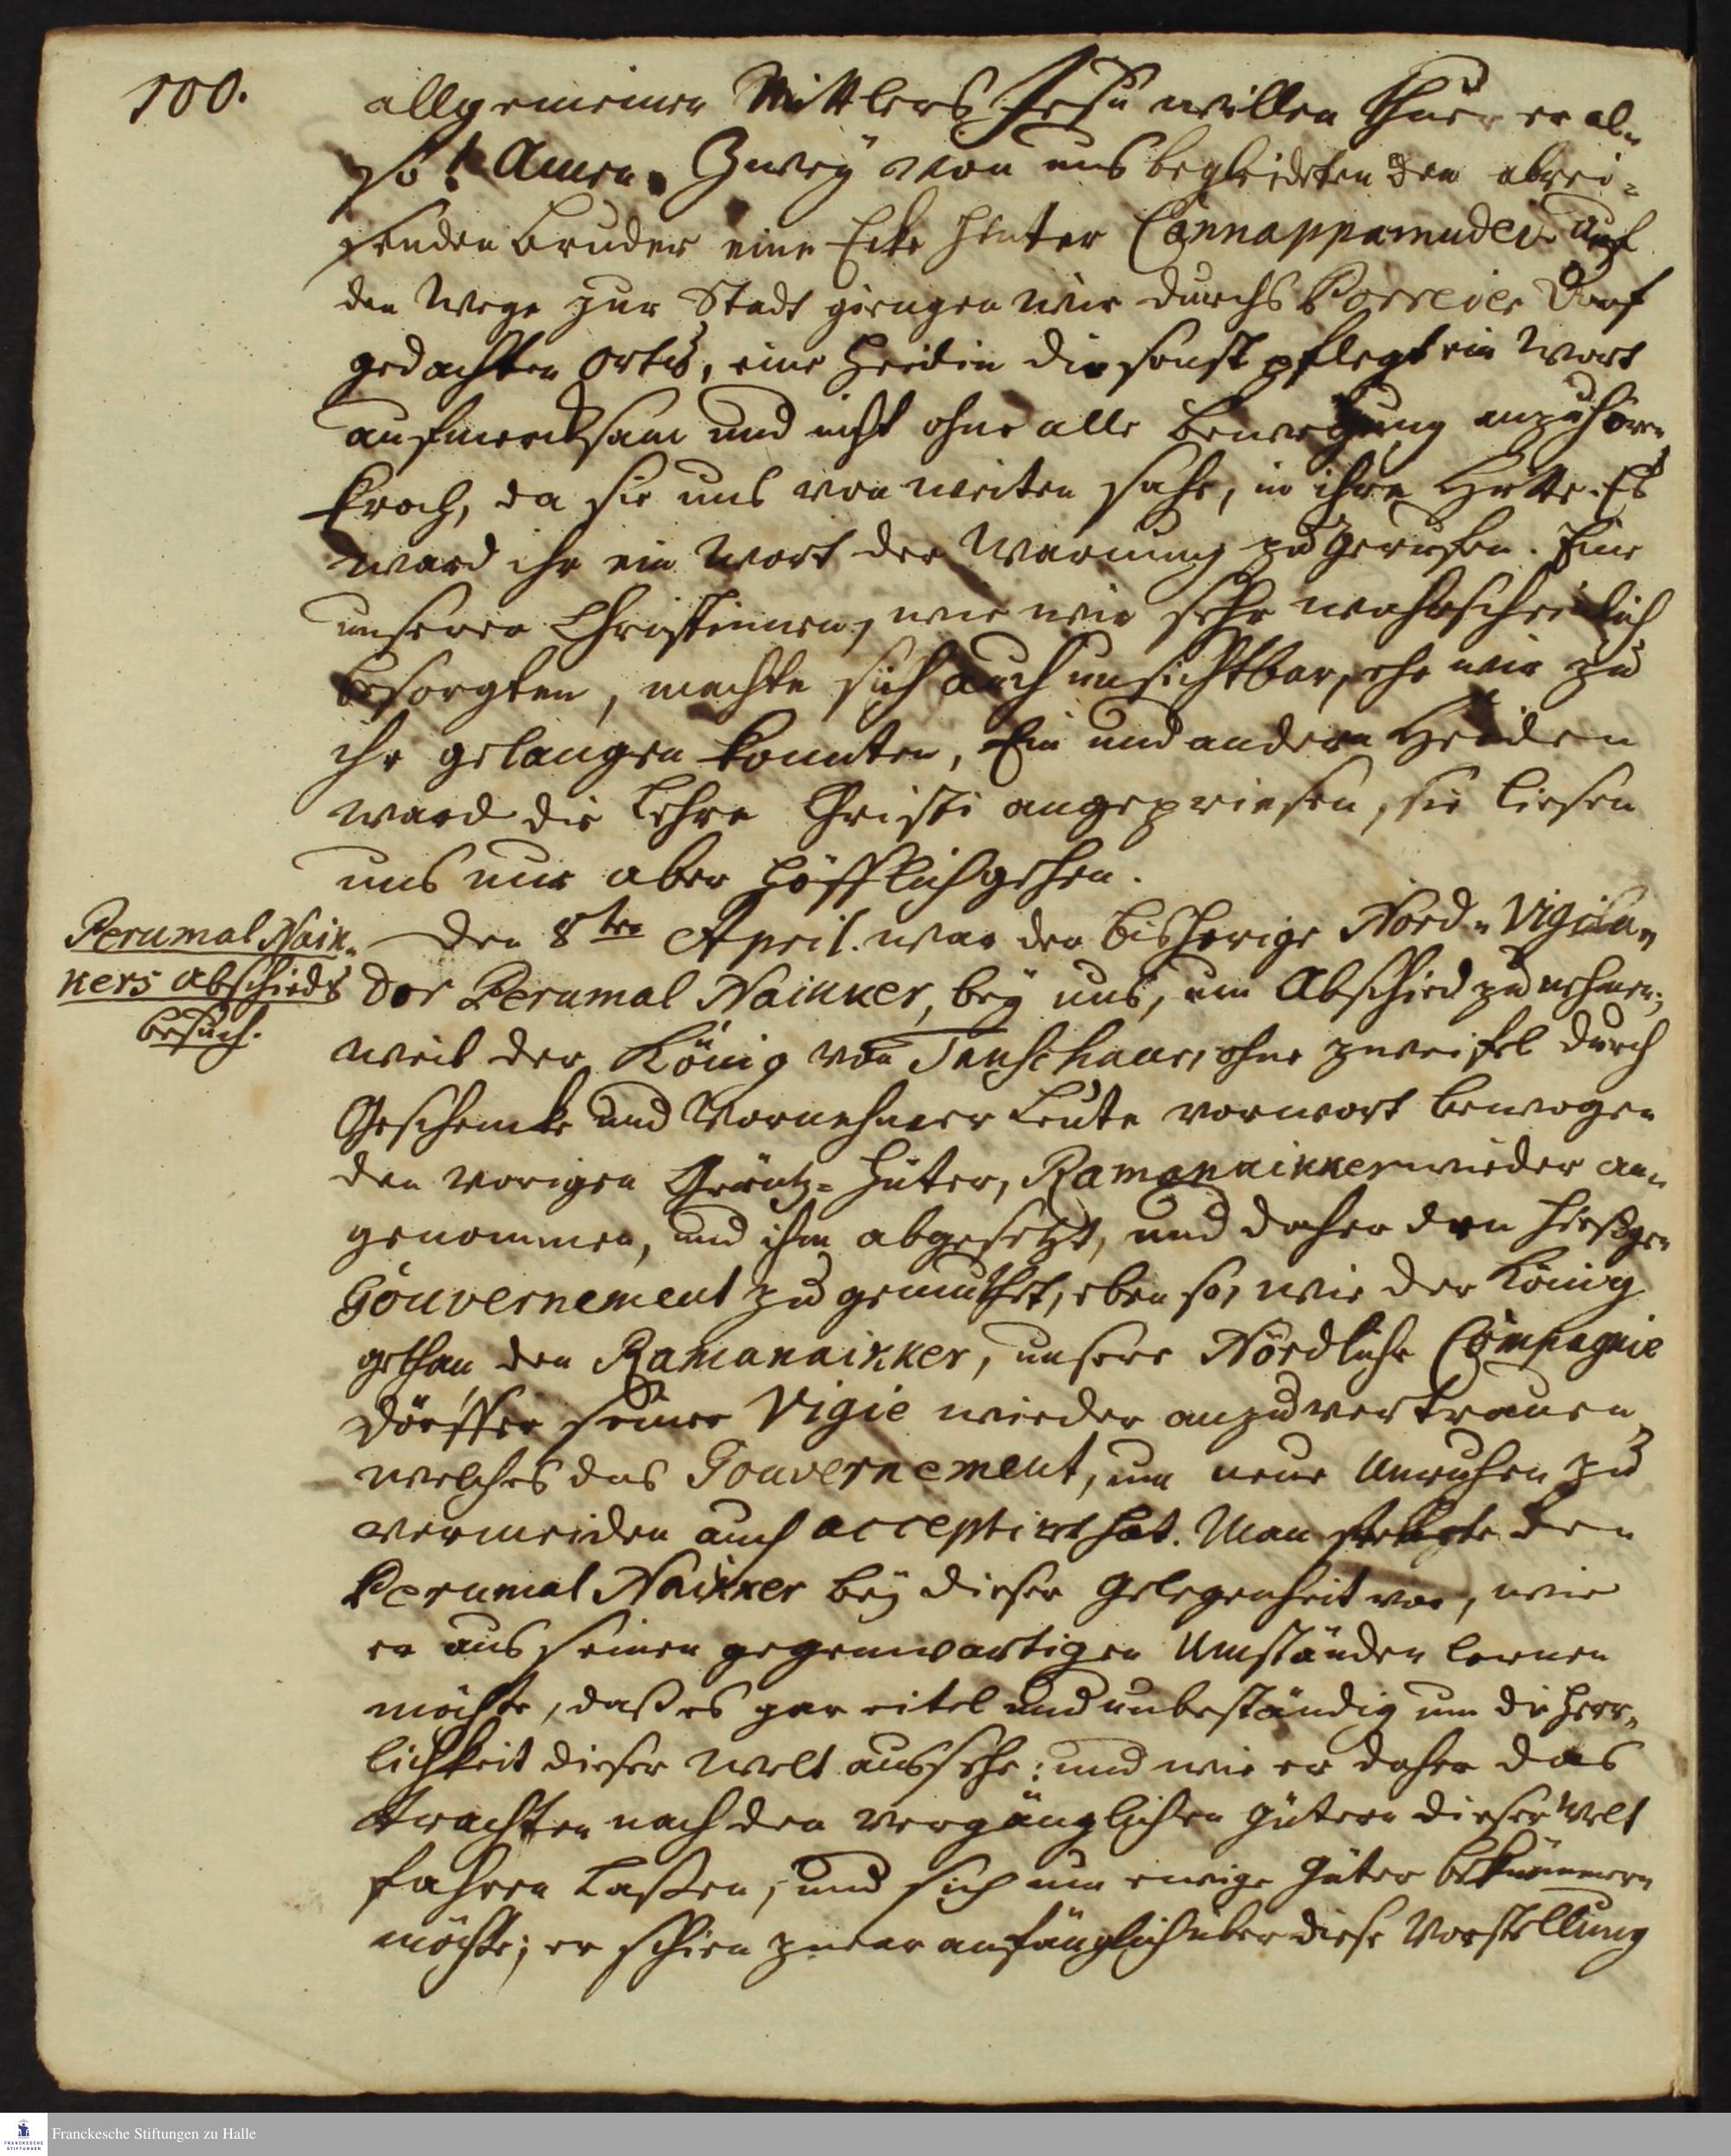 100.
allgemeinen Mittlers Jesu willen thue er al-
so! Amen. Zweÿ von uns begleideten den abrei-
senden Bruder eine Ecke hinter Cannappamudei. Auf
den Wege zur Stadt giengen wir durchs Porreier Dorf
gedachten Orts, eine Heidin die sonst pflegt ein Wort
aufmercksam und nicht ohne alle Bewegung anzuhören
kroch, da sie uns von weiten sahe, in ihre Hütte. Es
ward ihr ein Wort der Warnung zu gerufen. Eine
unserer Christinnen, wie wir sehr wahrscheinlich
besorgten, machte sich auch unsichtbar, ehe wir zu
ihr gelangen konnten, Ein und andern Heiden
ward die Lehre Christi angepriesen, sie liesen
uns nur aber höfflich gehen.
Perumal Naik-
kers abschieds
besuch.
Den 8ten April. war der bisherige Nord-Vigila-
dor Perumal Naikker, beÿ uns, um Abschied zu nehmen;
weil der König von Tanschaur, ohne zweifel durch
Geschencke und Vornehmer Leute vorwort bewogen
den vorigen Gräntz-Hüter, Ramanaikker wieder an-
genommen, und ihn abgesetzt, und daher den hießgen
Gouvernement zu gemuthet, eben so, wie der König
gethan den Ramanaikker, unsere Nördliche Compagnie
Dörffer seiner Vigie wieder anzuvertrauen,
welches das Gouvernement, um neue Unruhen zu
vermeiden auch acceptirt hat. Man stellete den
Perumal Naikker beÿ dieser Gelegenheit vor, wie
er aus seinen gegenwärtigen Umständen lernen
möchte, daß es gar eitel und unbeständig um die Herr-
lichkeit dieser Welt aussehe: und wie er daher das
trachten nach den vergänglichen Gütern dieser Welt
fahren laßen, und sich um ewige Güter bekümmern
möchte; er schien zwar anfänglich über diese Vorstellung
Franckesche Stiftungen zu Halle